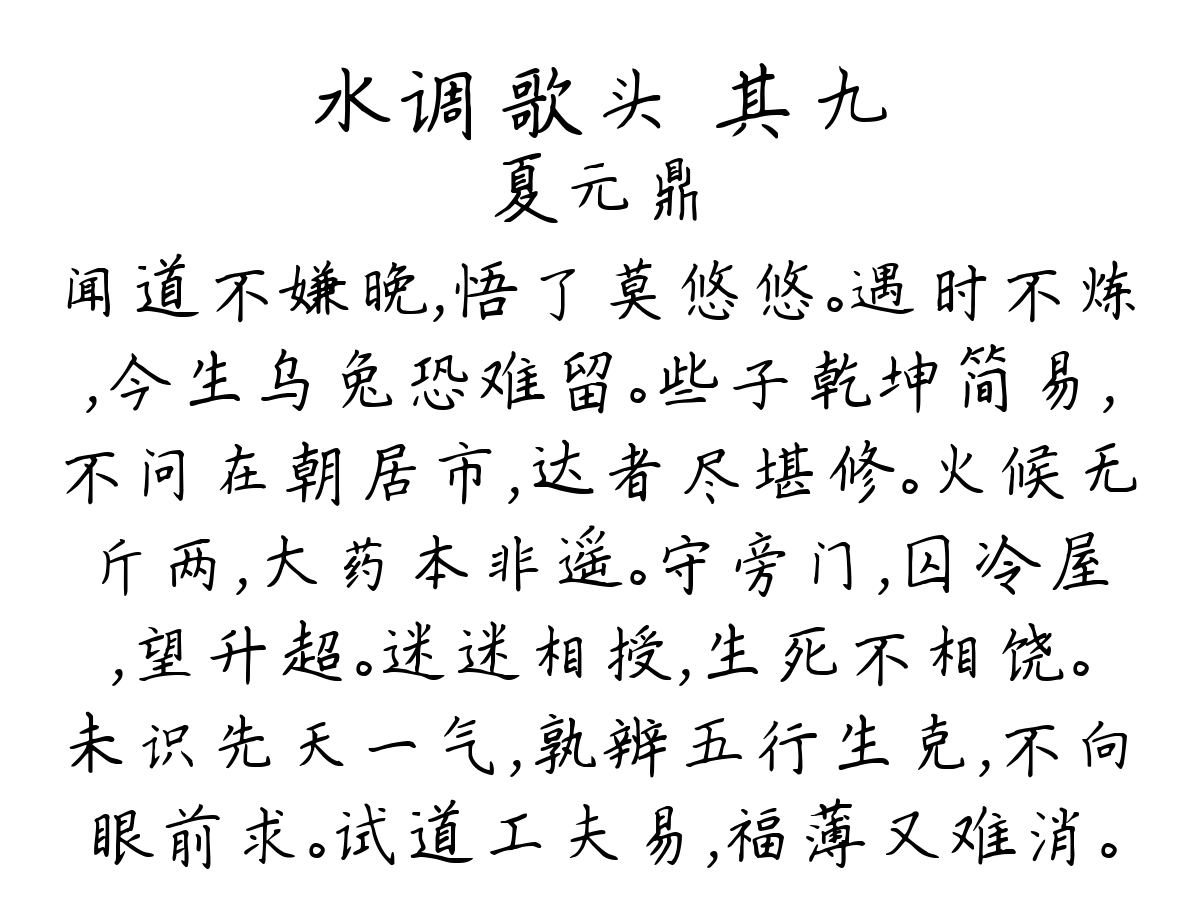 水调歌头 其九
夏元鼎
闻道不嫌晚,悟了莫悠悠。遇时不炼
,今生乌兔恐难留。些子乾坤简易,
不问在朝居市,达者尽堪修。火候无
斤两,大药本非遥。守旁门,囚冷屋
,望升超。迷迷相授,生死不相饶。
未识先天一气,孰辨五行生克,不向
眼前求。试道工夫易,福薄又难消。